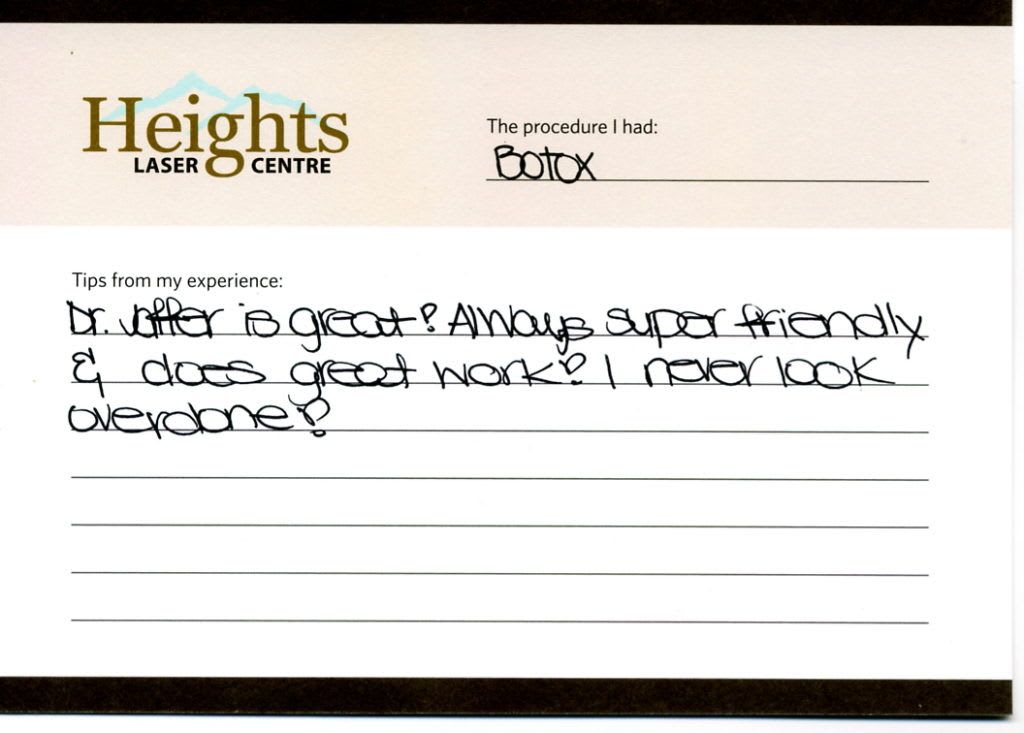 Heights
LASER CENTRE
The procedure I had:
Botox
Tips from my experience:
Dr. Jaffer is great! Always super friendly
& does great work! I never look
overdone!